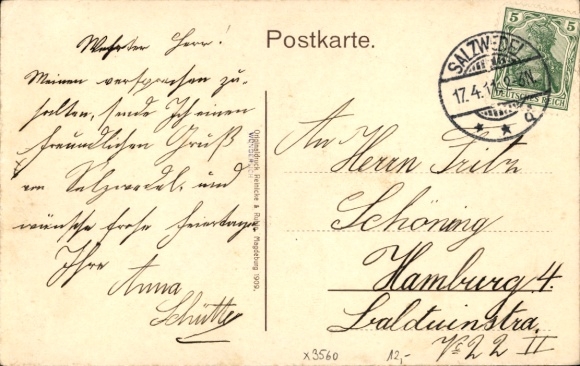 Postkarte.
Wehrter Herr!
Meinen versprechen zu-
halten, sende Ich einen
freundlichen Gruß
von Salzwedel, und
wünsche frohe Feiertage
Ihre
Anna
Schütte
Originaldruck Reinicke & Rubin, Magdeburg 1909.
5 5
SALZWEDEL
17.4.11 6-7N.
* * d
DEUTSCHES REICH
An
Herrn Fritz
Schöning
Hamburg 4.
Balduinstra.
No 22 II
x3560
12,-